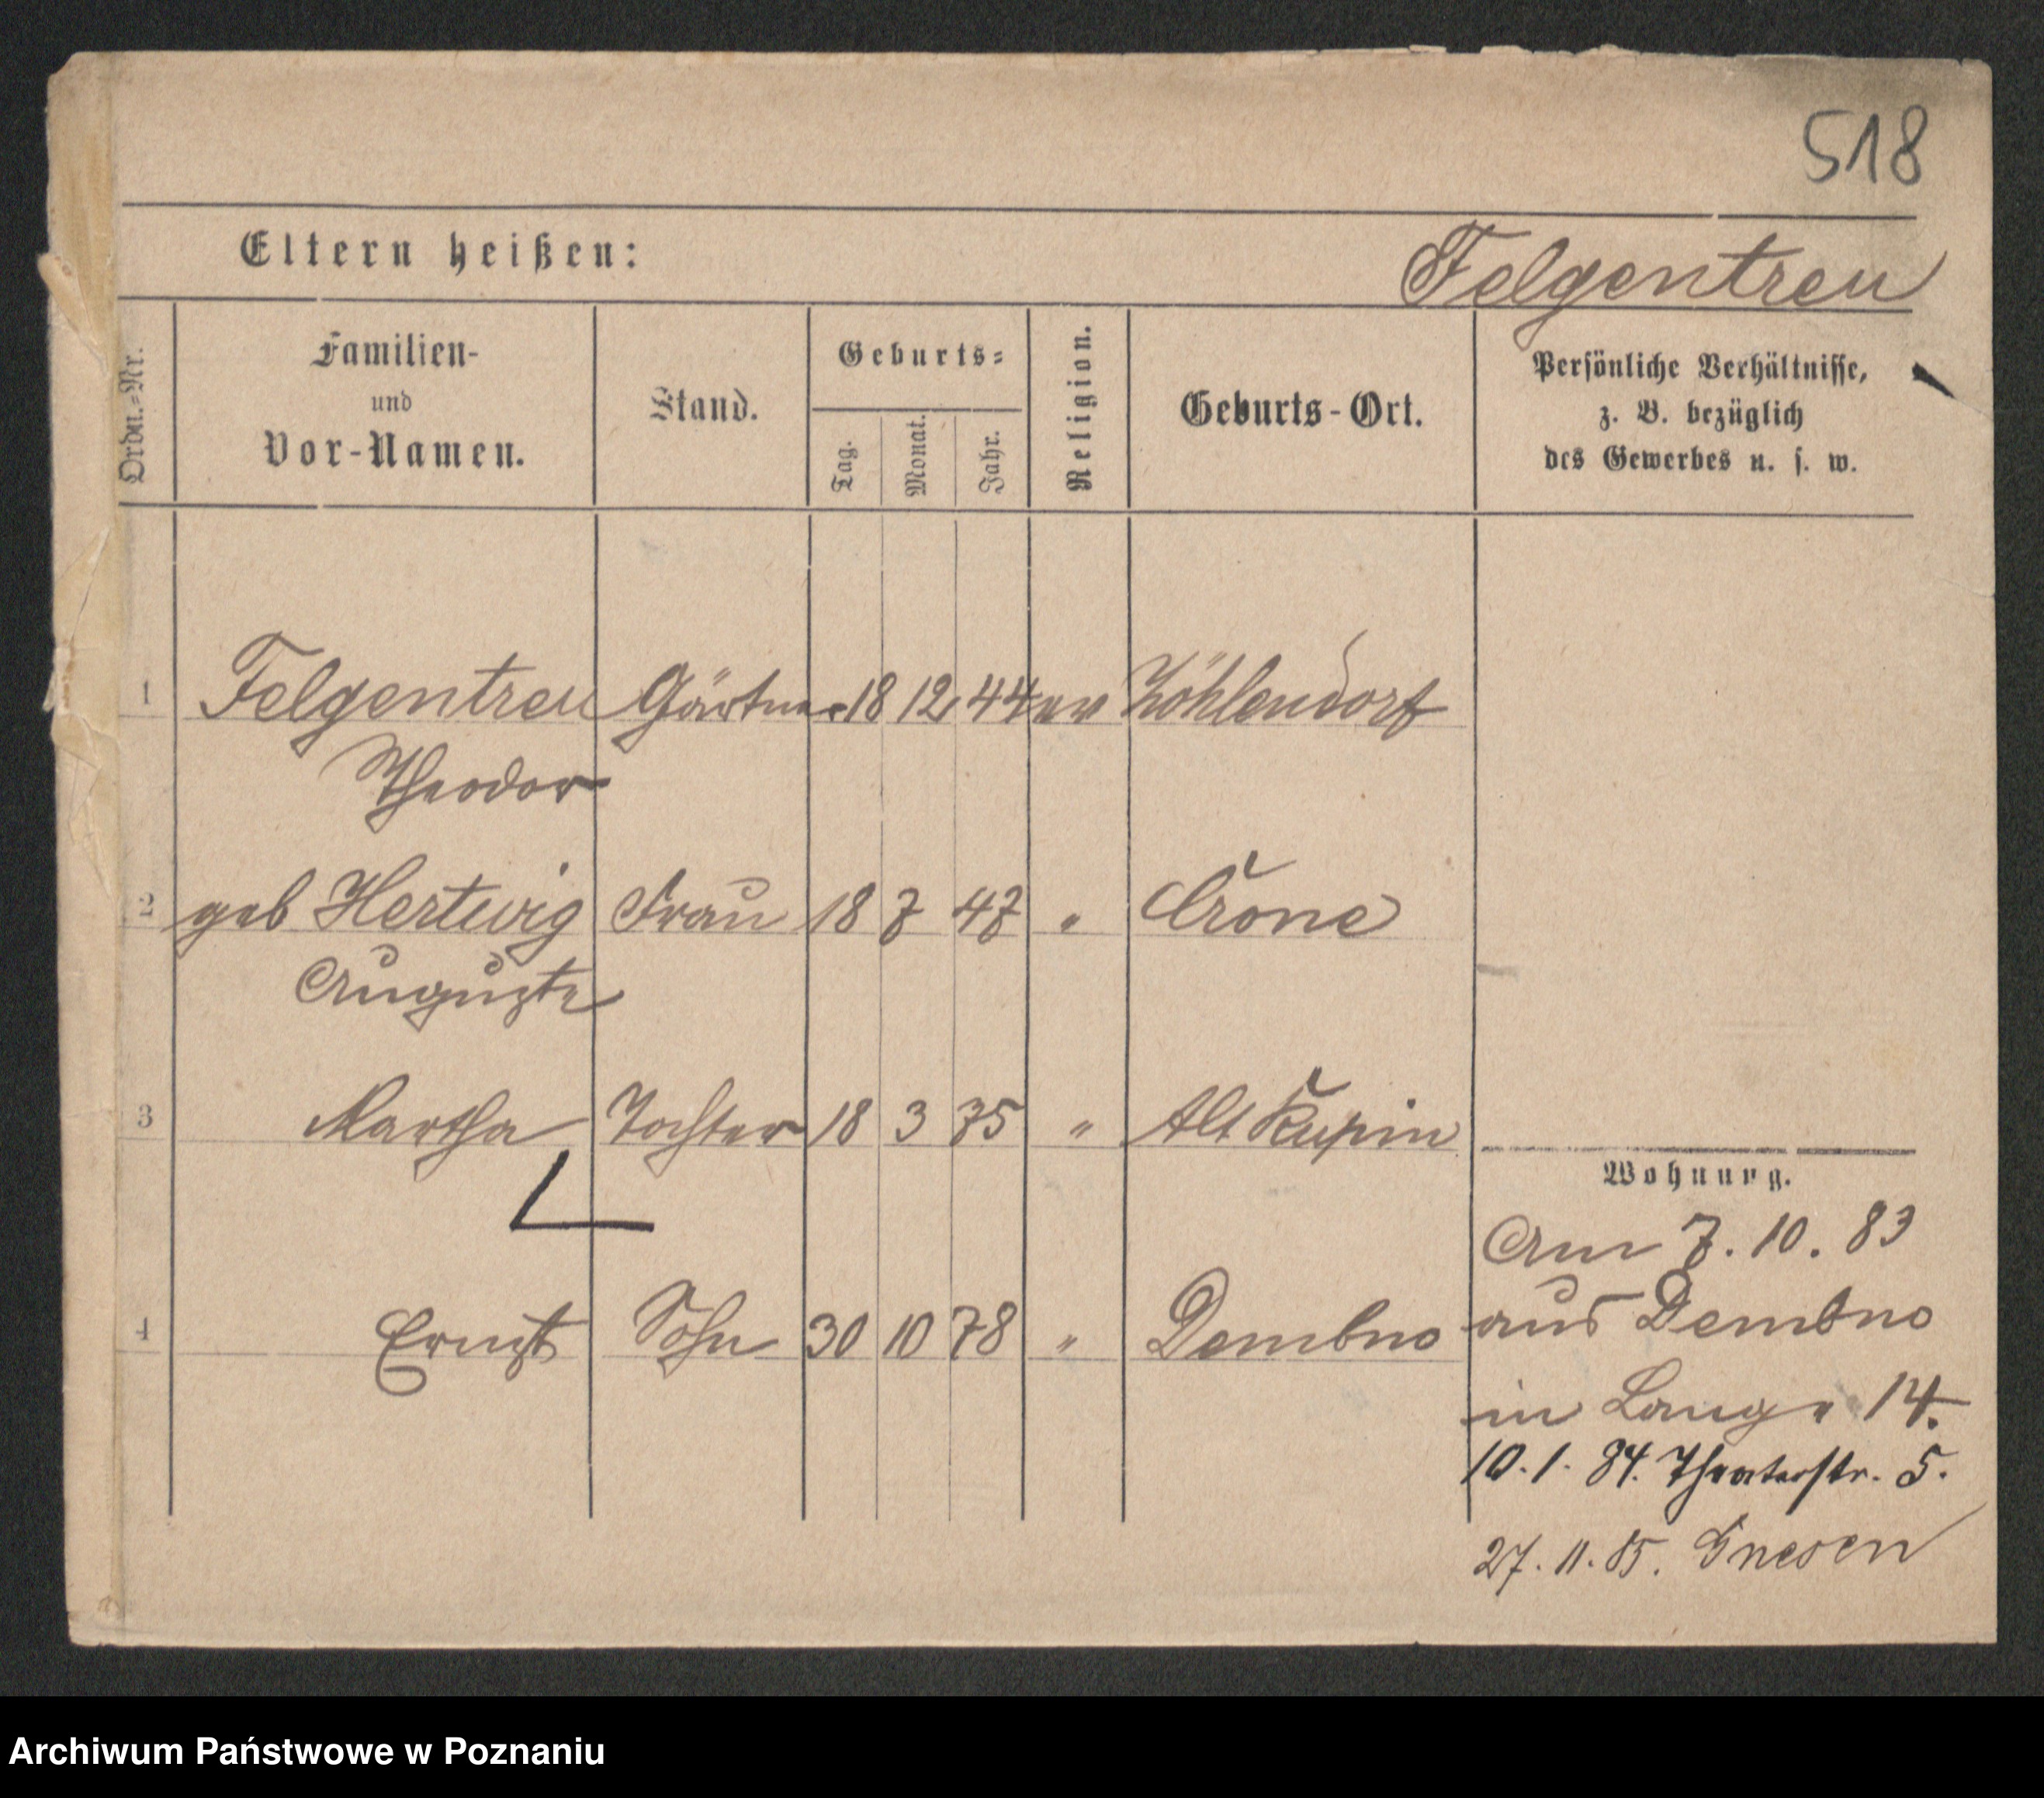 518
Eltern heißen:
Felgentreu
Ordn.-Nr.
Familien-
und
Vor-Namen.
Stand.
Geburts-
Tag.
Monat.
Jahr.
Religion.
Geburts-Ort.
Persönliche Verhältnisse,
z. B. bezüglich
des Gewerbes u. s. w.
1 Felgentreu Gärtner 18 12 44 ev
Theodor
2 geb Hertwig Frau 18 7 47 " Crone
Auguste
3 Martha Tochter 18 3 75 " Alt Kupin
4 Ernst Sohn 30 10 78 " Dembno
Wohnung.
Am 7. 10. 83
aus Dembno
in Lange 14.
10. 1. 84. Theaterstr. 5.
27. 11. 85. Gnesen
Archiwum Państwowe w Poznaniu